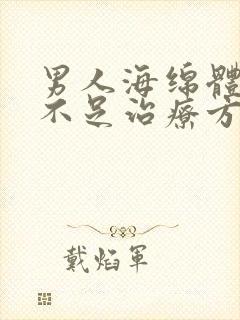 男人海绵體
不足治療方
戴焰軍